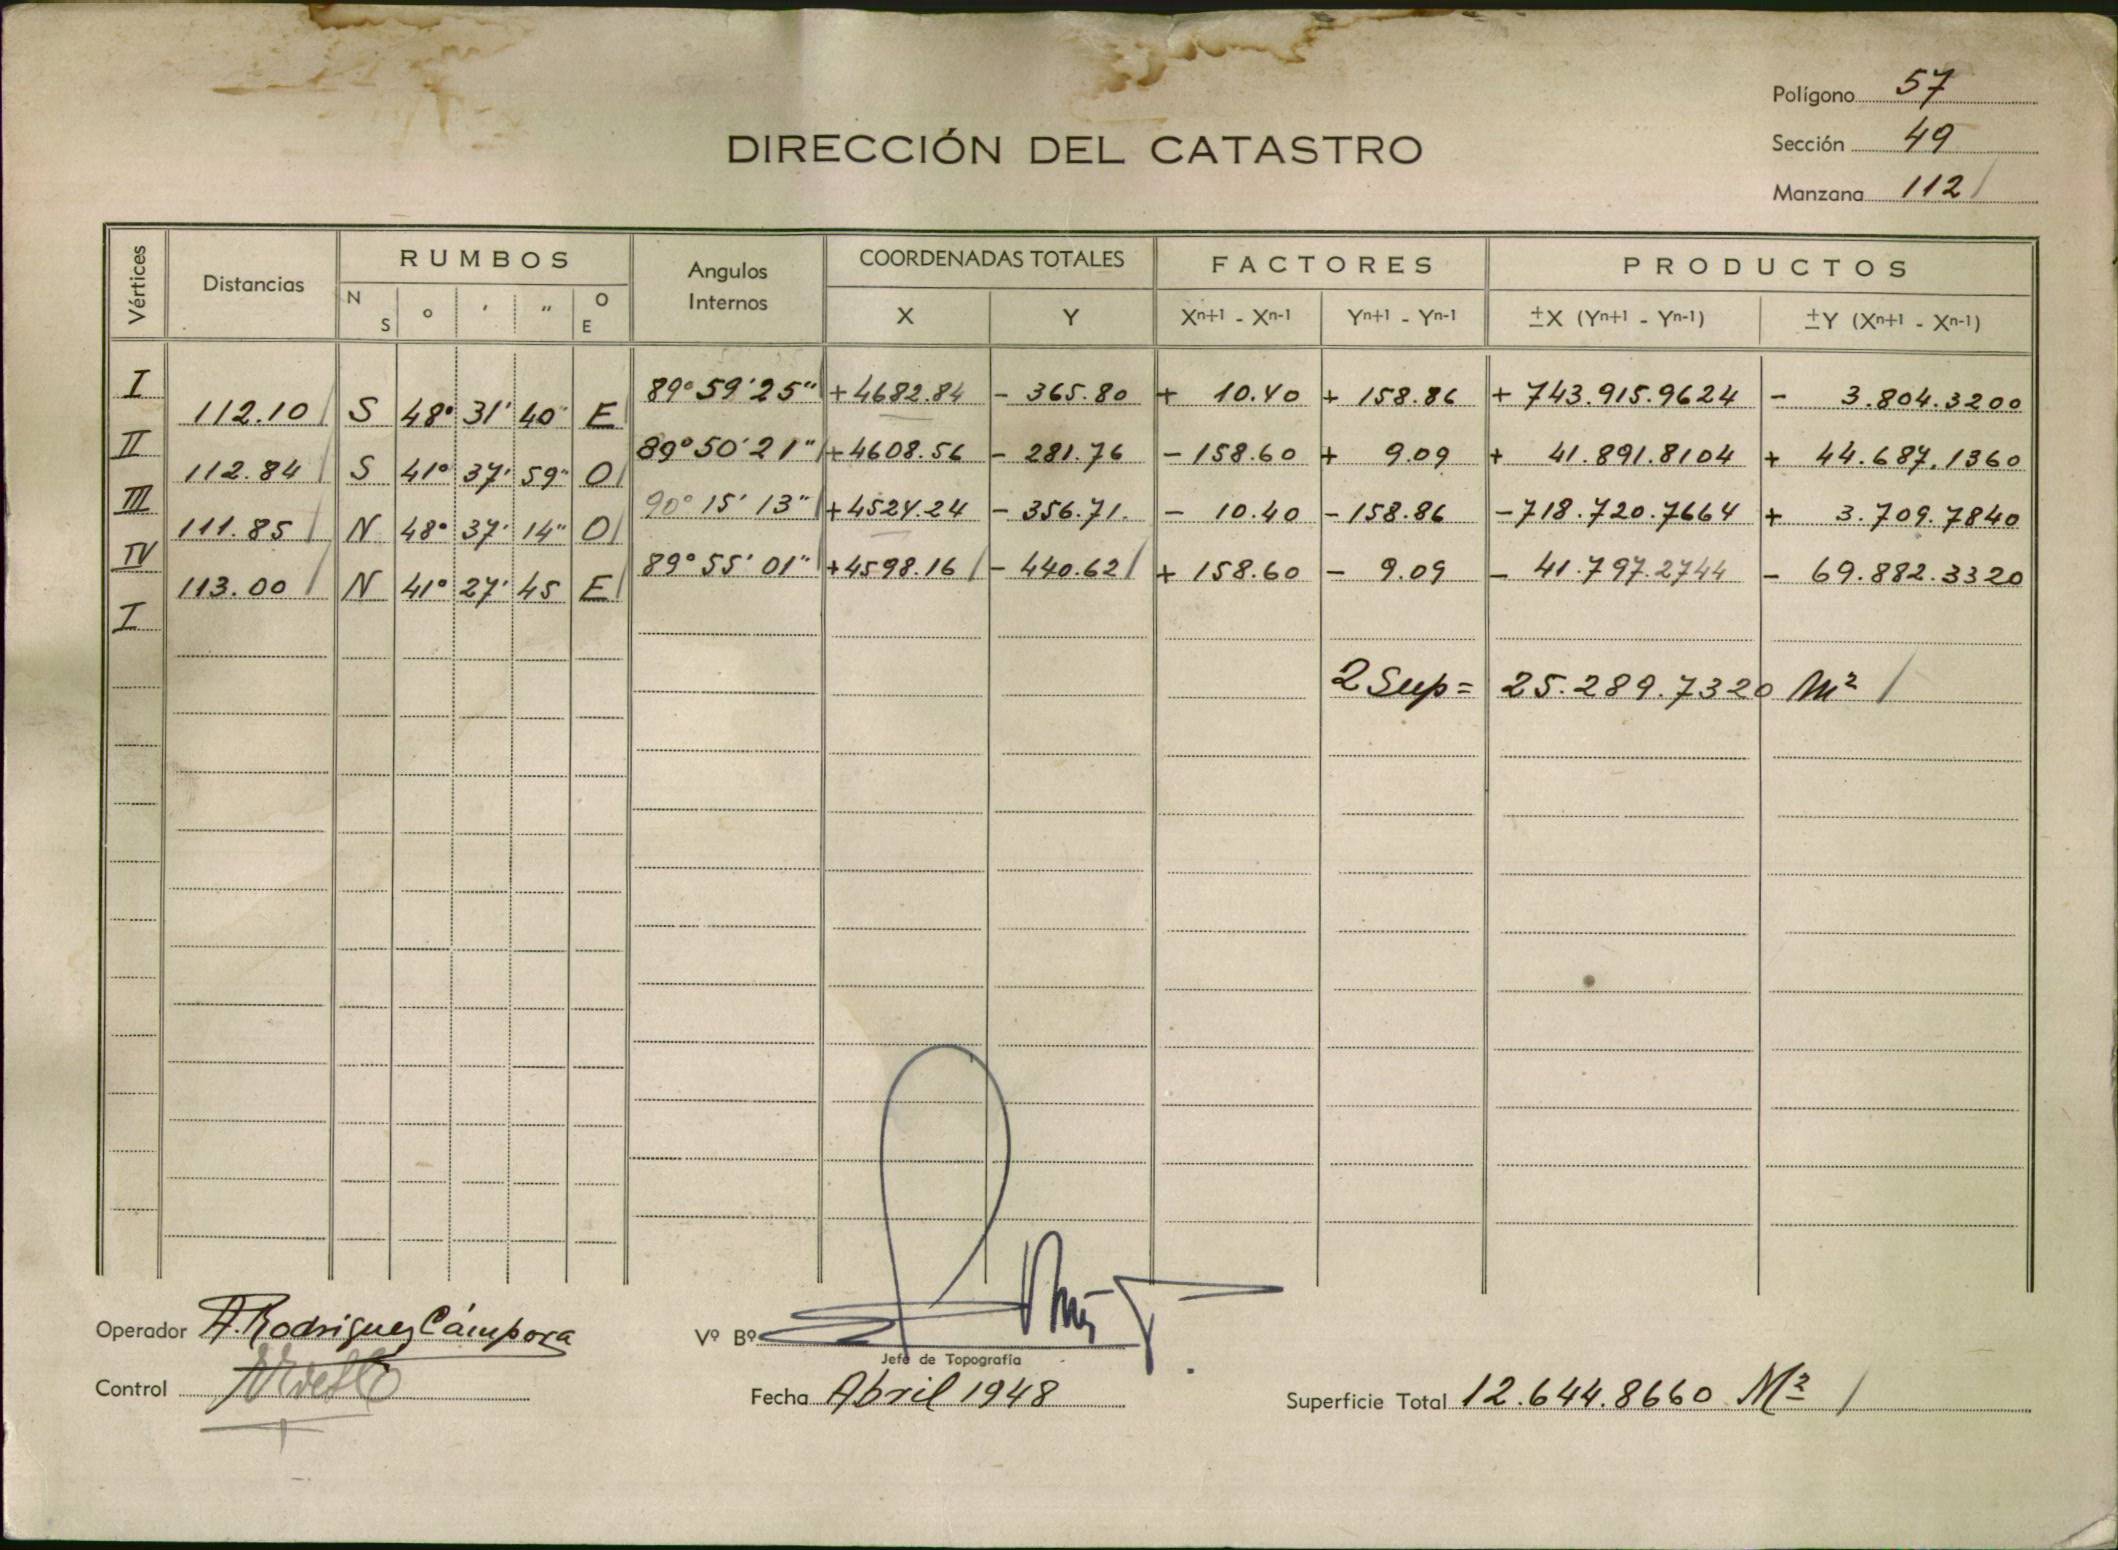 Polígono 57
Sección 49
Manzana 112
DIRECCIÓN DEL CATASTRO
Vértices Distancias RUMBOS Angulos Internos COORDENADAS TOTALES FACTORES PRODUCTOS
N S ° ' " O E X Y Xn+1 - Xn-1 Yn+1 - Yn-1 ±X (Yn+1 - Yn-1) ±Y (Xn+1 - Xn-1)
I 89° 59' 25" +4682.84 - 365.80 + 10.40 + 158.86 + 743.915.9624 - 3.804.3200
112.10 S 48° 31' 40" E
II 89° 50' 21" +4608.56 - 281.76 - 158.60 + 9.09 + 41.891.8104 + 44.687.1360
112.84 S 41° 37' 59" O
III 90° 15' 13" +4524.24 - 356.71. - 10.40 - 158.86 - 718.720.7664 + 3.709.7840
111.85 N 48° 37' 14" O
IV 89° 55' 01" +4598.16 - 440.62 + 158.60 - 9.09 - 41.797.2744 - 69.882.3320
113.00 N 41° 27' 45 E
I
2 Sup = 25.289.7320 m²
Operador A. Rodriguez Cámpora
Vº Bº
Jefe de Topografía
Control
Fecha Abril 1948
Superficie Total 12.644.8660 M²